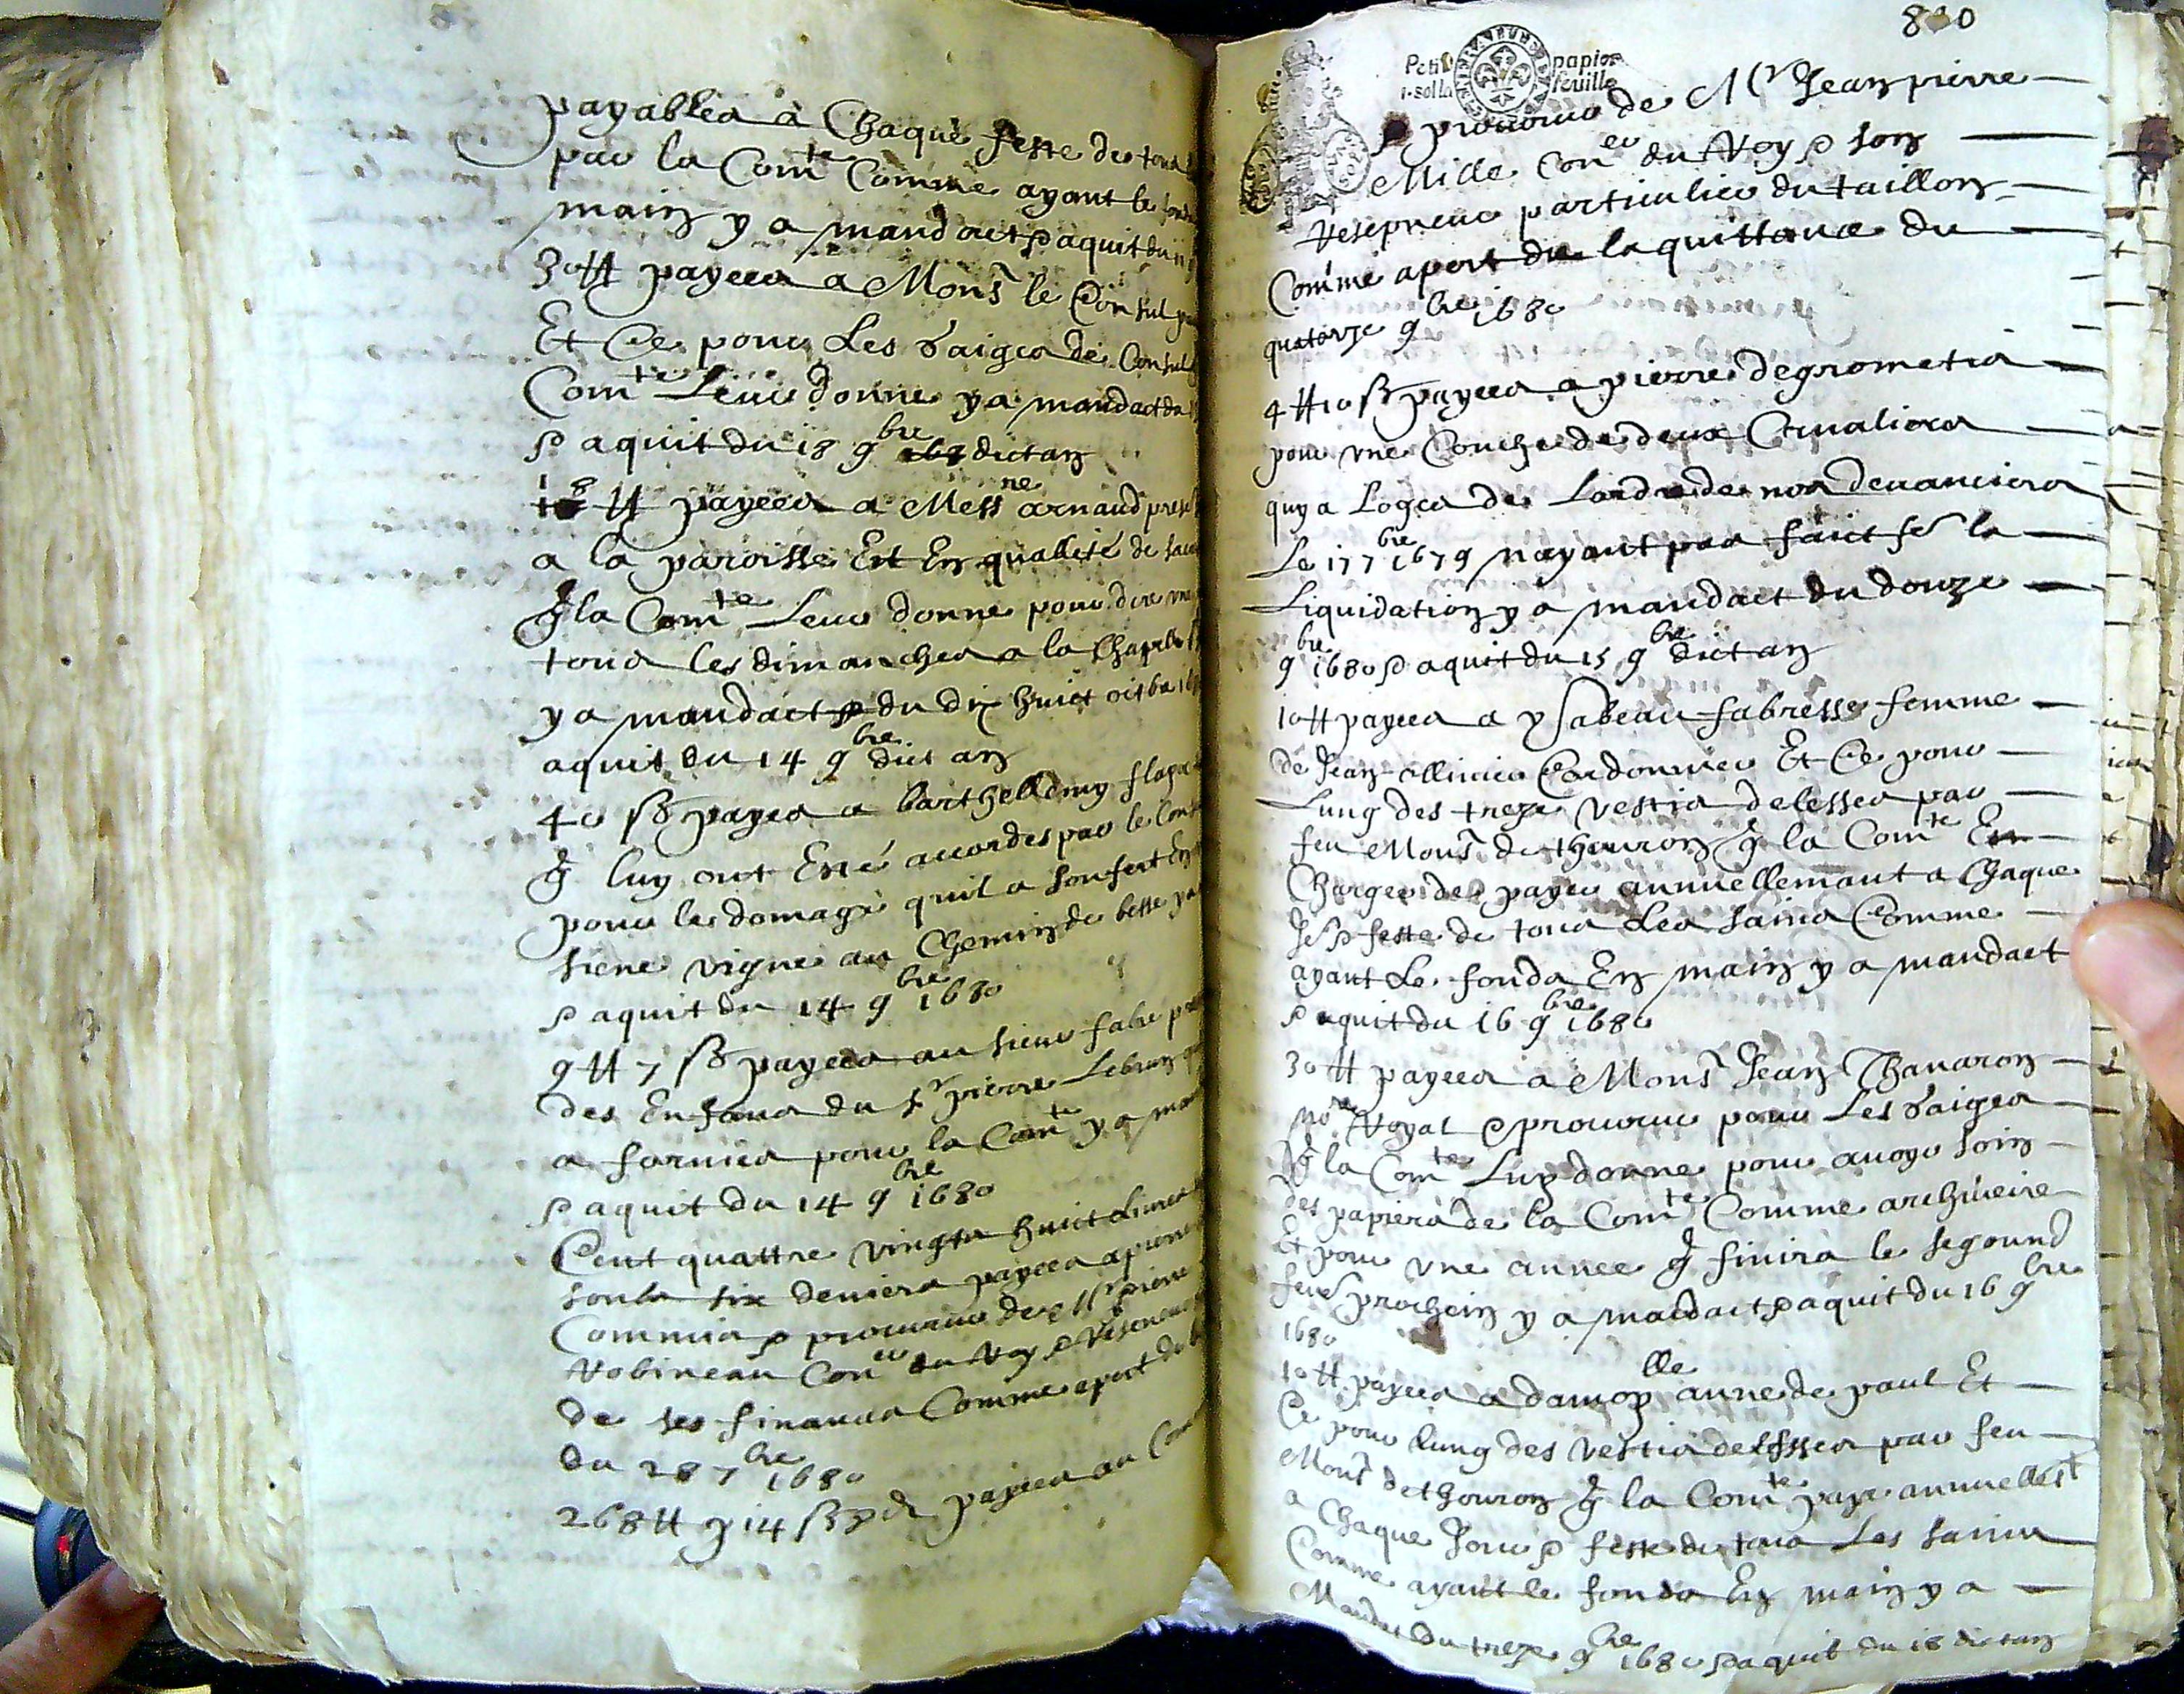 payables à Chaque feste de tous
par la Comte Comme ayant le fonds
main y a mandact & aquit du
30 ₶ payees a Monsr le Consul
Et Ce pour Les gaiges de Consul
Comte Leur donne y a mandact du
& aquit du 18 9bre dict an
18 ₶ payees a Messre arnaud
a la paroisse Est En quallité de
q la Comte Leur donne pour dire
tous les dimanches a la Chapelle
y a mandact du dix huict
aquit du 14 9bre dict an
40 ß payes a barthellemy
q luy ont Esté accordes par le
pour le domage quil a soufert En
siene vigne au Chemin de besse y a
& aquit du 14 9bre 1680
9 ₶ 7 ß payees au sieur fabre
des Enfans du sr pierre Lebrun
a fornies pour la Comte y a
& aquit du 14 9bre 1680
Cent quattre vingts huict Livres
soubs six deniers payees a pierre
Commis & procureur de Mr pierre
Robineau Coner du Roy & Reseveur
de ses finances Comme apert du
du 28 7bre 1680
268 ₶ 14 ß 8 d payees au
810
Petit papier
1·sol la feuille
& procureur de Mr Jean pierre
Mille Coner du Roy & son
Resepveur particulier du taillon
Comme apert de la quittance du
quatorze 9bre 1680
4 ₶ 10 ß payees a pierre degrometis
pour une Couche de deux Cavaliers
quy a Loges de Lordre de nos devanciers
Le 17 7bre 1679 nayant pas faict fe la
Liquidation y a mandact du douze
9bre 1680 & aquit du 15 9bre dict an
10 ₶ payees a ysabeau fabresse femme
de Jean ollivier Cordonnier Et Ce pour
Lung des treze vestis delesses par
feu Monsr de thouron q la Comte Est
Charges de payer annuellemant a Chaque
feste de tous Les sains Comme
ayant Le fonds En main y a mandact
& aquit du 16 9bre 1680
30 ₶ payees a Monsr Jean Thanaron
nore Royal & procureur pour Les gaiges
q la Comte Luy donne pour avoyr soin
des papiers de la Comte Comme archiveire
Et pour une annee q finira le segound
prochein y a mandact & aquit du 16 9bre
1680
10 ₶ payees a damoylle anne de paul Et
Ce pour lung des vestis delesses par feu
Monsr de thouron q la Comte paye annuellemt
a Chaque Jour & feste de tous Les sains
Comme ayant le fonds En main y a
Mandact du treze 9bre 1680 & aquit du 18 dict an